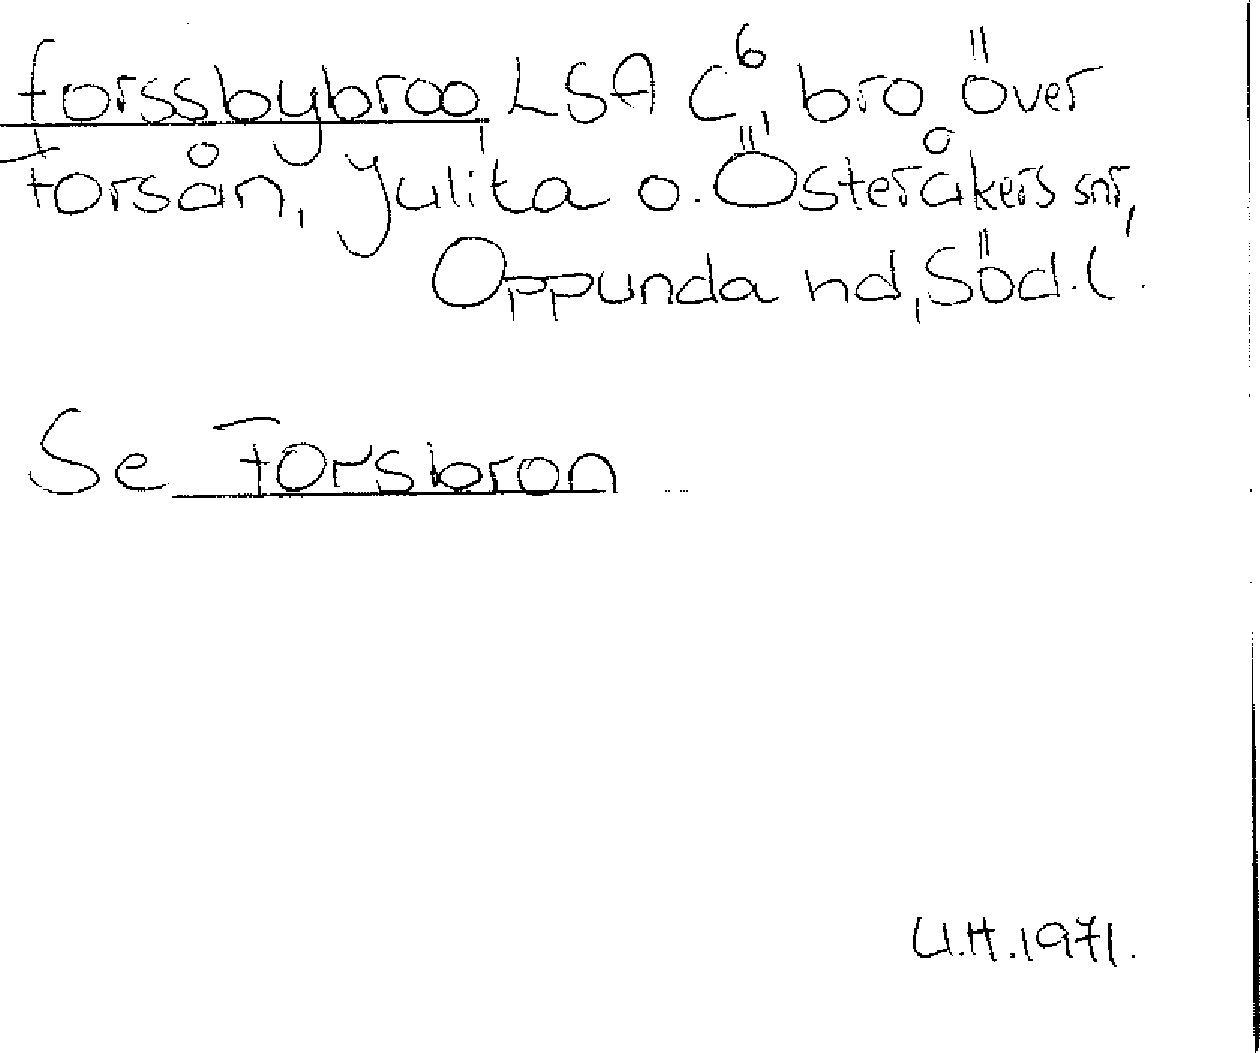 forssbybroo LSA C⁶, bro över
Forsån, Julita o. Österåkers snr,
Oppunda hd, Söd. l.
Se Forsbron
U.H. 1971.